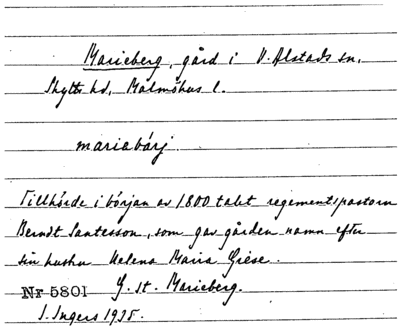 Marieberg, gård i V. Alstads sn,
Skytts hd, Malmöhus l.
mariabárj
Tillhörde i början av 1800 talet regementspastorn
Berndt Santesson, som gav gården namn efter
sin hustru Helena Maria Giése.
Nr 5801 G. st. Marieberg.
I. Ingers 1935.